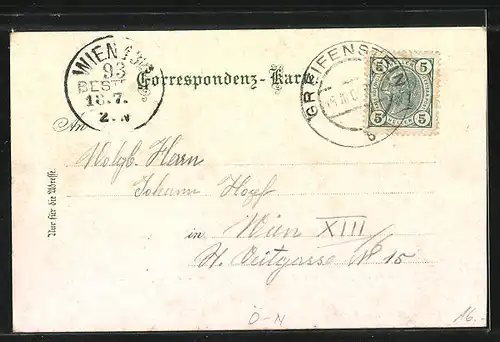 WIEN 13/
93
BEST
18.7.
2.N
Correspondenz-Karte
GREIFENSTEIN
5 5
5 5
HELLER
An
Wolgb. Herrn
Johann Hopf
in Wien XIII
St. Veitgasse No 15
Nur für die Adresse.
Ö-N
16.-